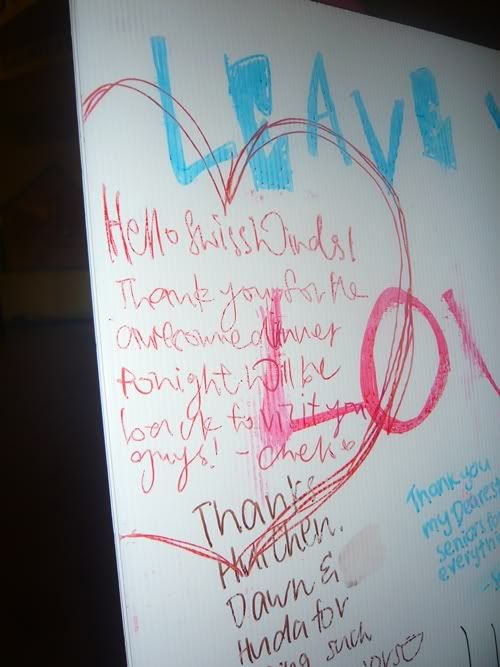 LEAVE
Hello SwissWinds!
Thank you for the
awesome dinner
tonight. Will be
back to visit you
guys! -
LOV
Thanks
Hui Chen.
Dawn &
Huda for
such
Thank you
my Dearest
seniors for
everything